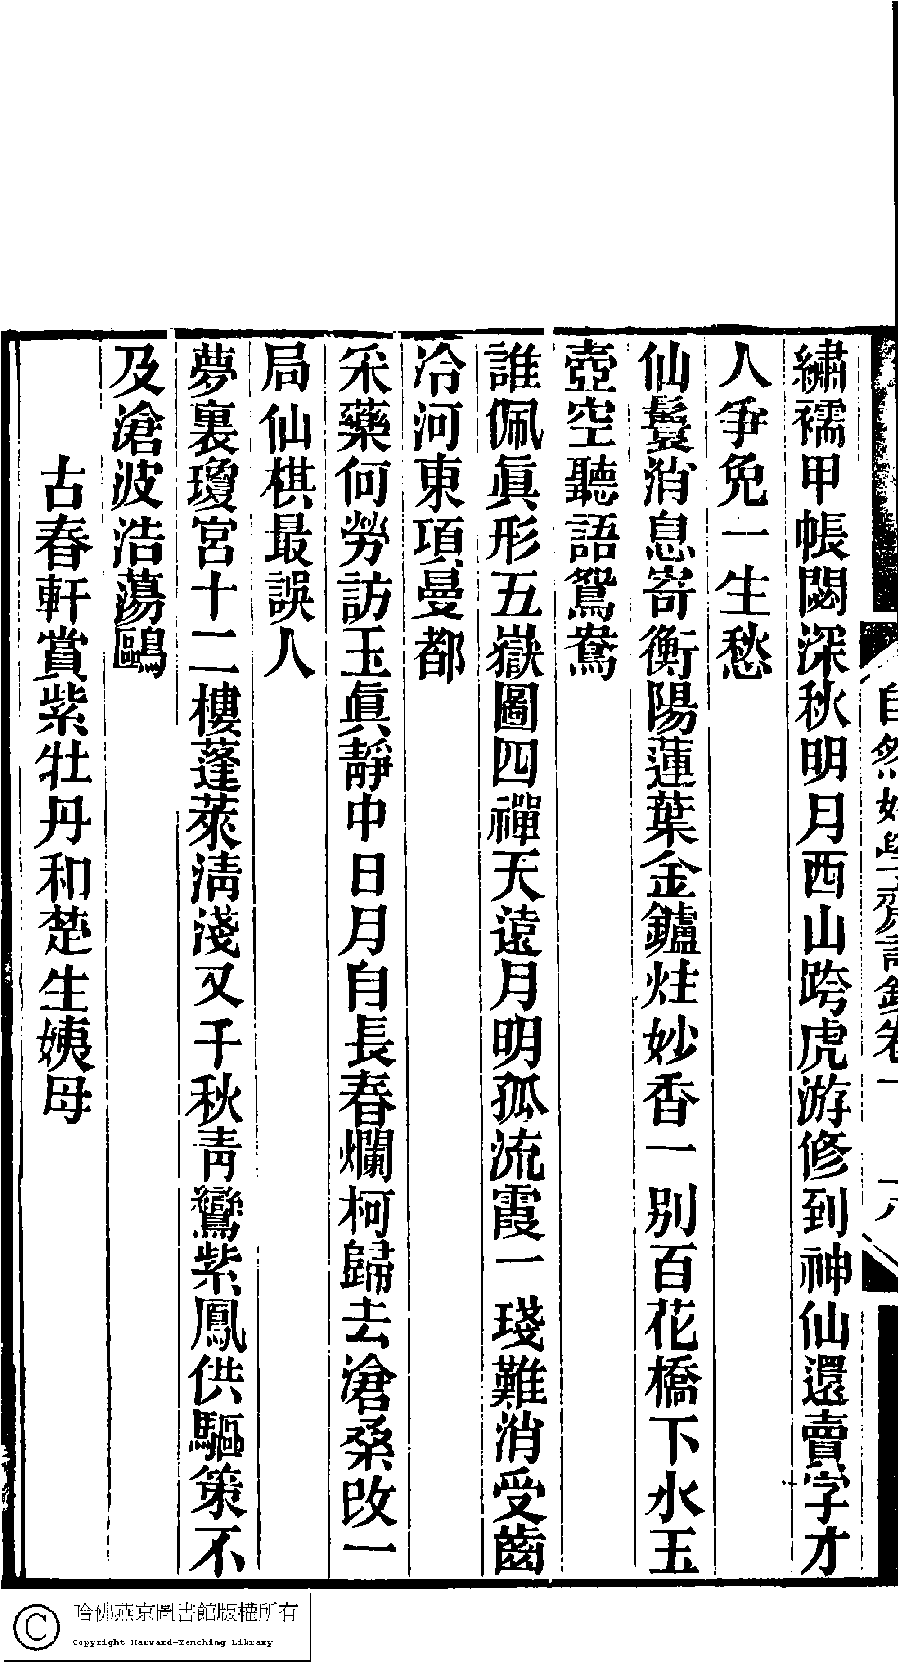 自然好學齋詩鈔卷一 十八
繡襦甲帳閟深秋明月西山跨虎游修到神仙還賣字才
人爭免一生愁
仙鬟消息寄衡陽蓮葉金鑪炷妙香一別百花橋下水玉
壺空聽語鴛鴦
誰佩眞形五嶽圖四禪天遠月明孤流霞一琖難消受齒
冷河東項曼都
采藥何勞訪玉眞靜中日月自長春爛柯歸去滄桑改一
局仙棋最誤人
夢裏瓊宮十二樓蓬萊淸淺又千秋靑鸞紫鳳供驅策不
及滄波浩蕩鷗
古春軒賞紫牡丹和楚生姨母
哈佛燕京圖書館版權所有
Copyright Harvard-Yenching Library